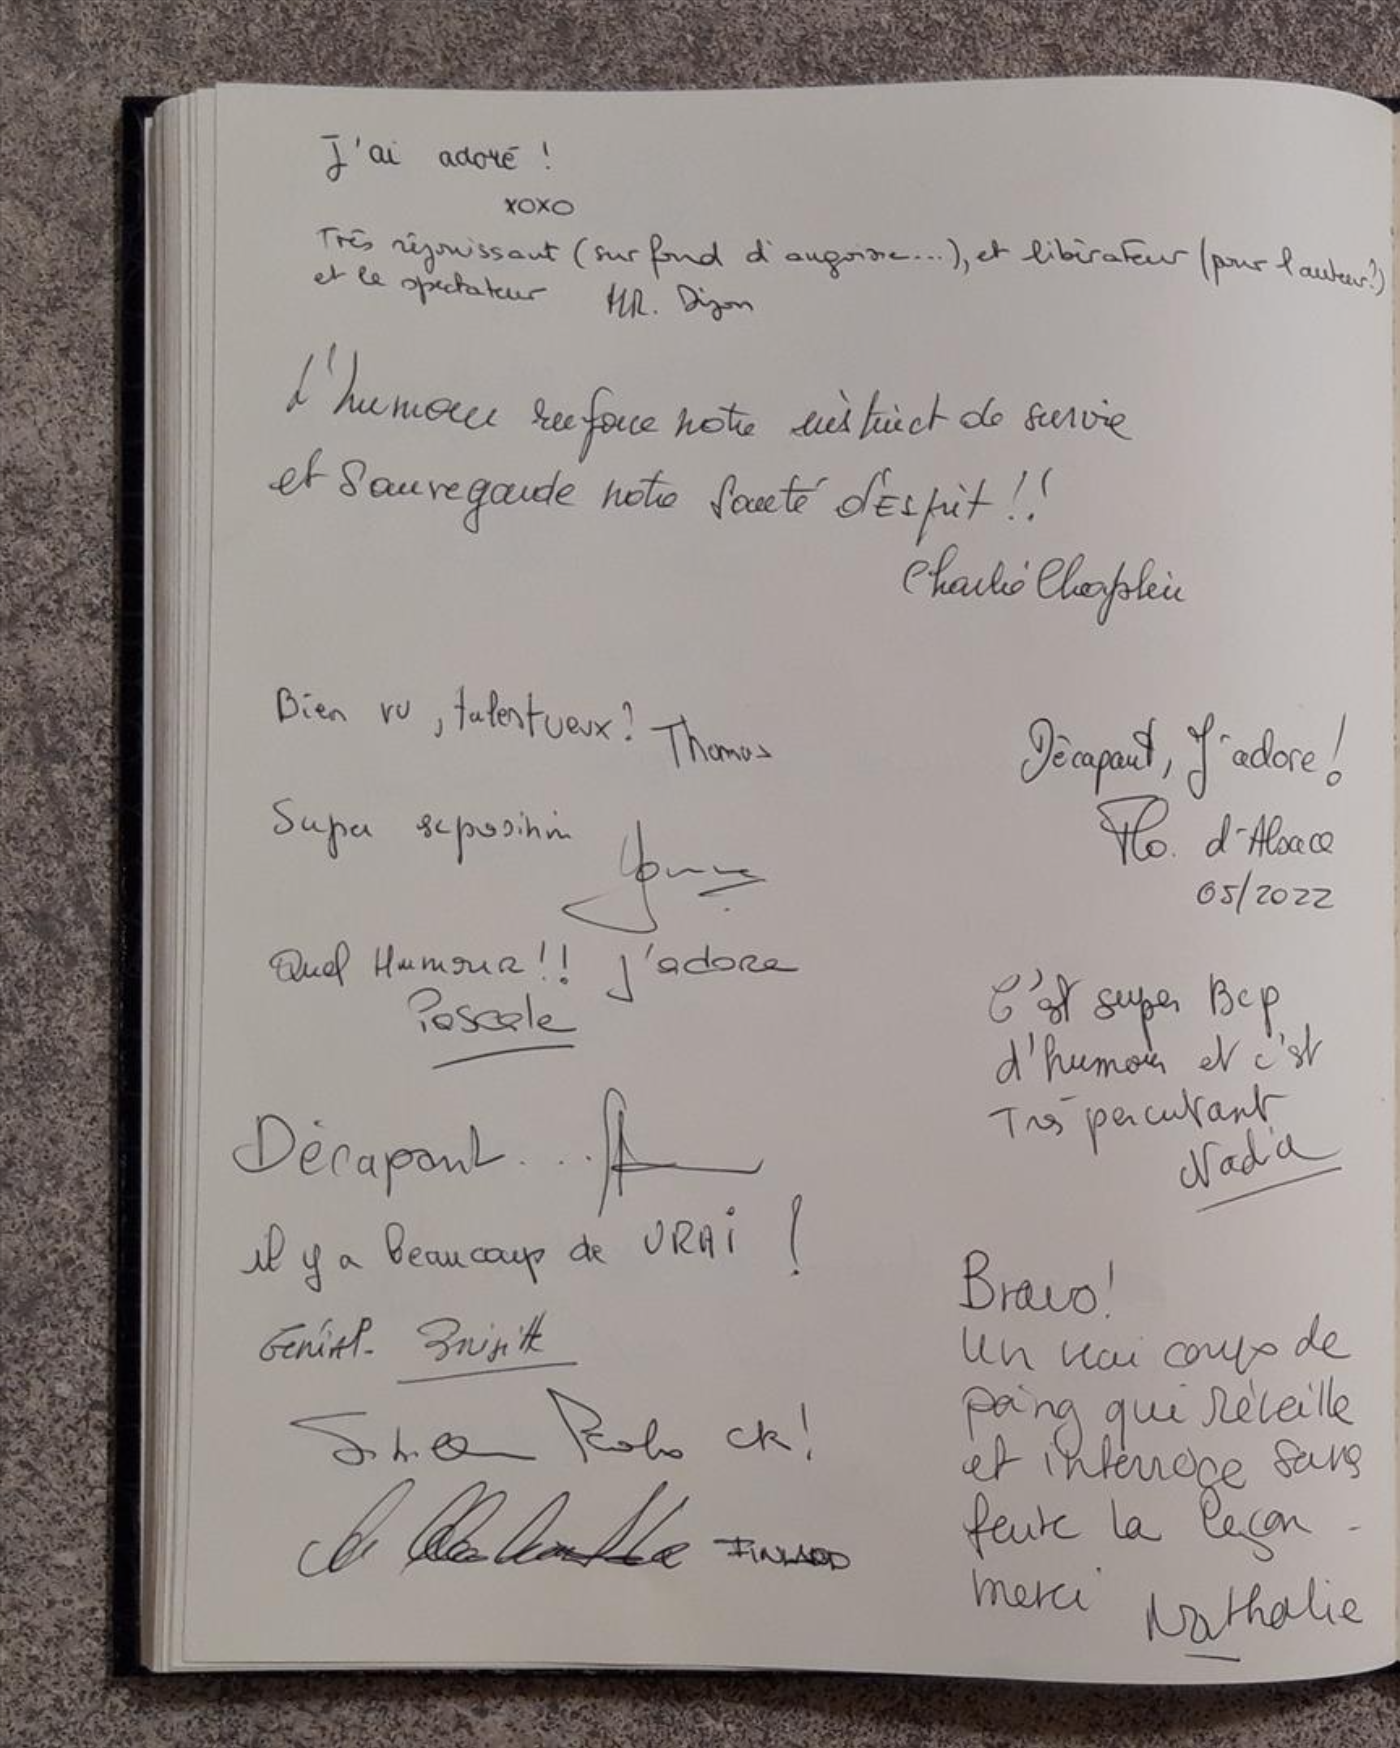 J'ai adoré !
xoxo
Très réjouissant (sur fond d'angoisse...), et libérateur (pour l'auteur?)
et le spectateur MR. Dijon
L'humour renforce notre instinct de survie
et Sauvegarde notre Santé d'Esprit !!
Charlie Chaplin
Bien vu, talentueux! Thomas
Super exposition
Quel Humour!! J'adore
Pascale
Décapant...
il y a beaucoup de VRAI !
Génial-
ok!
FINLAND
Décapant, J'adore!
Flo. d'Alsace
05/2022
C'est super Bcp
d'humour et c'est
Très percutant
Nadia
Bravo!
Un vrai coup de
poing qui réveille
et interroge sans
faire la leçon -
merci Nathalie